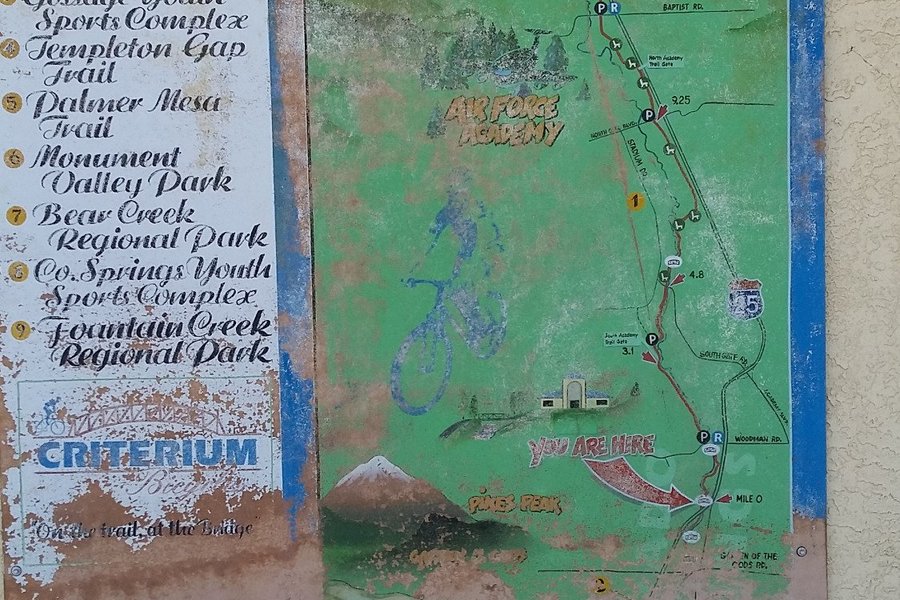 Gossage Youth
Sports Complex
4 Templeton Gap
Trail
5 Palmer Mesa
Trail
6 Monument
Valley Park
7 Bear Creek
Regional Park
8 Co. Springs Youth
Sports Complex
9 Fountain Creek
Regional Park
CRITERIUM
"On the trail, at the Bridge"
P R
BAPTIST RD.
North Academy
Trail Gate
AIR FORCE
ACADEMY
P
9.25
NORTH GATE BLVD.
STADIUM DR.
1
4.8
25
South Academy
Trail Gate
P
3.1
SOUTH GATE RD.
P R
WOODMAN RD.
YOU ARE HERE
MILE 0
PIKES PEAK
GARDEN OF THE
GODS RD.